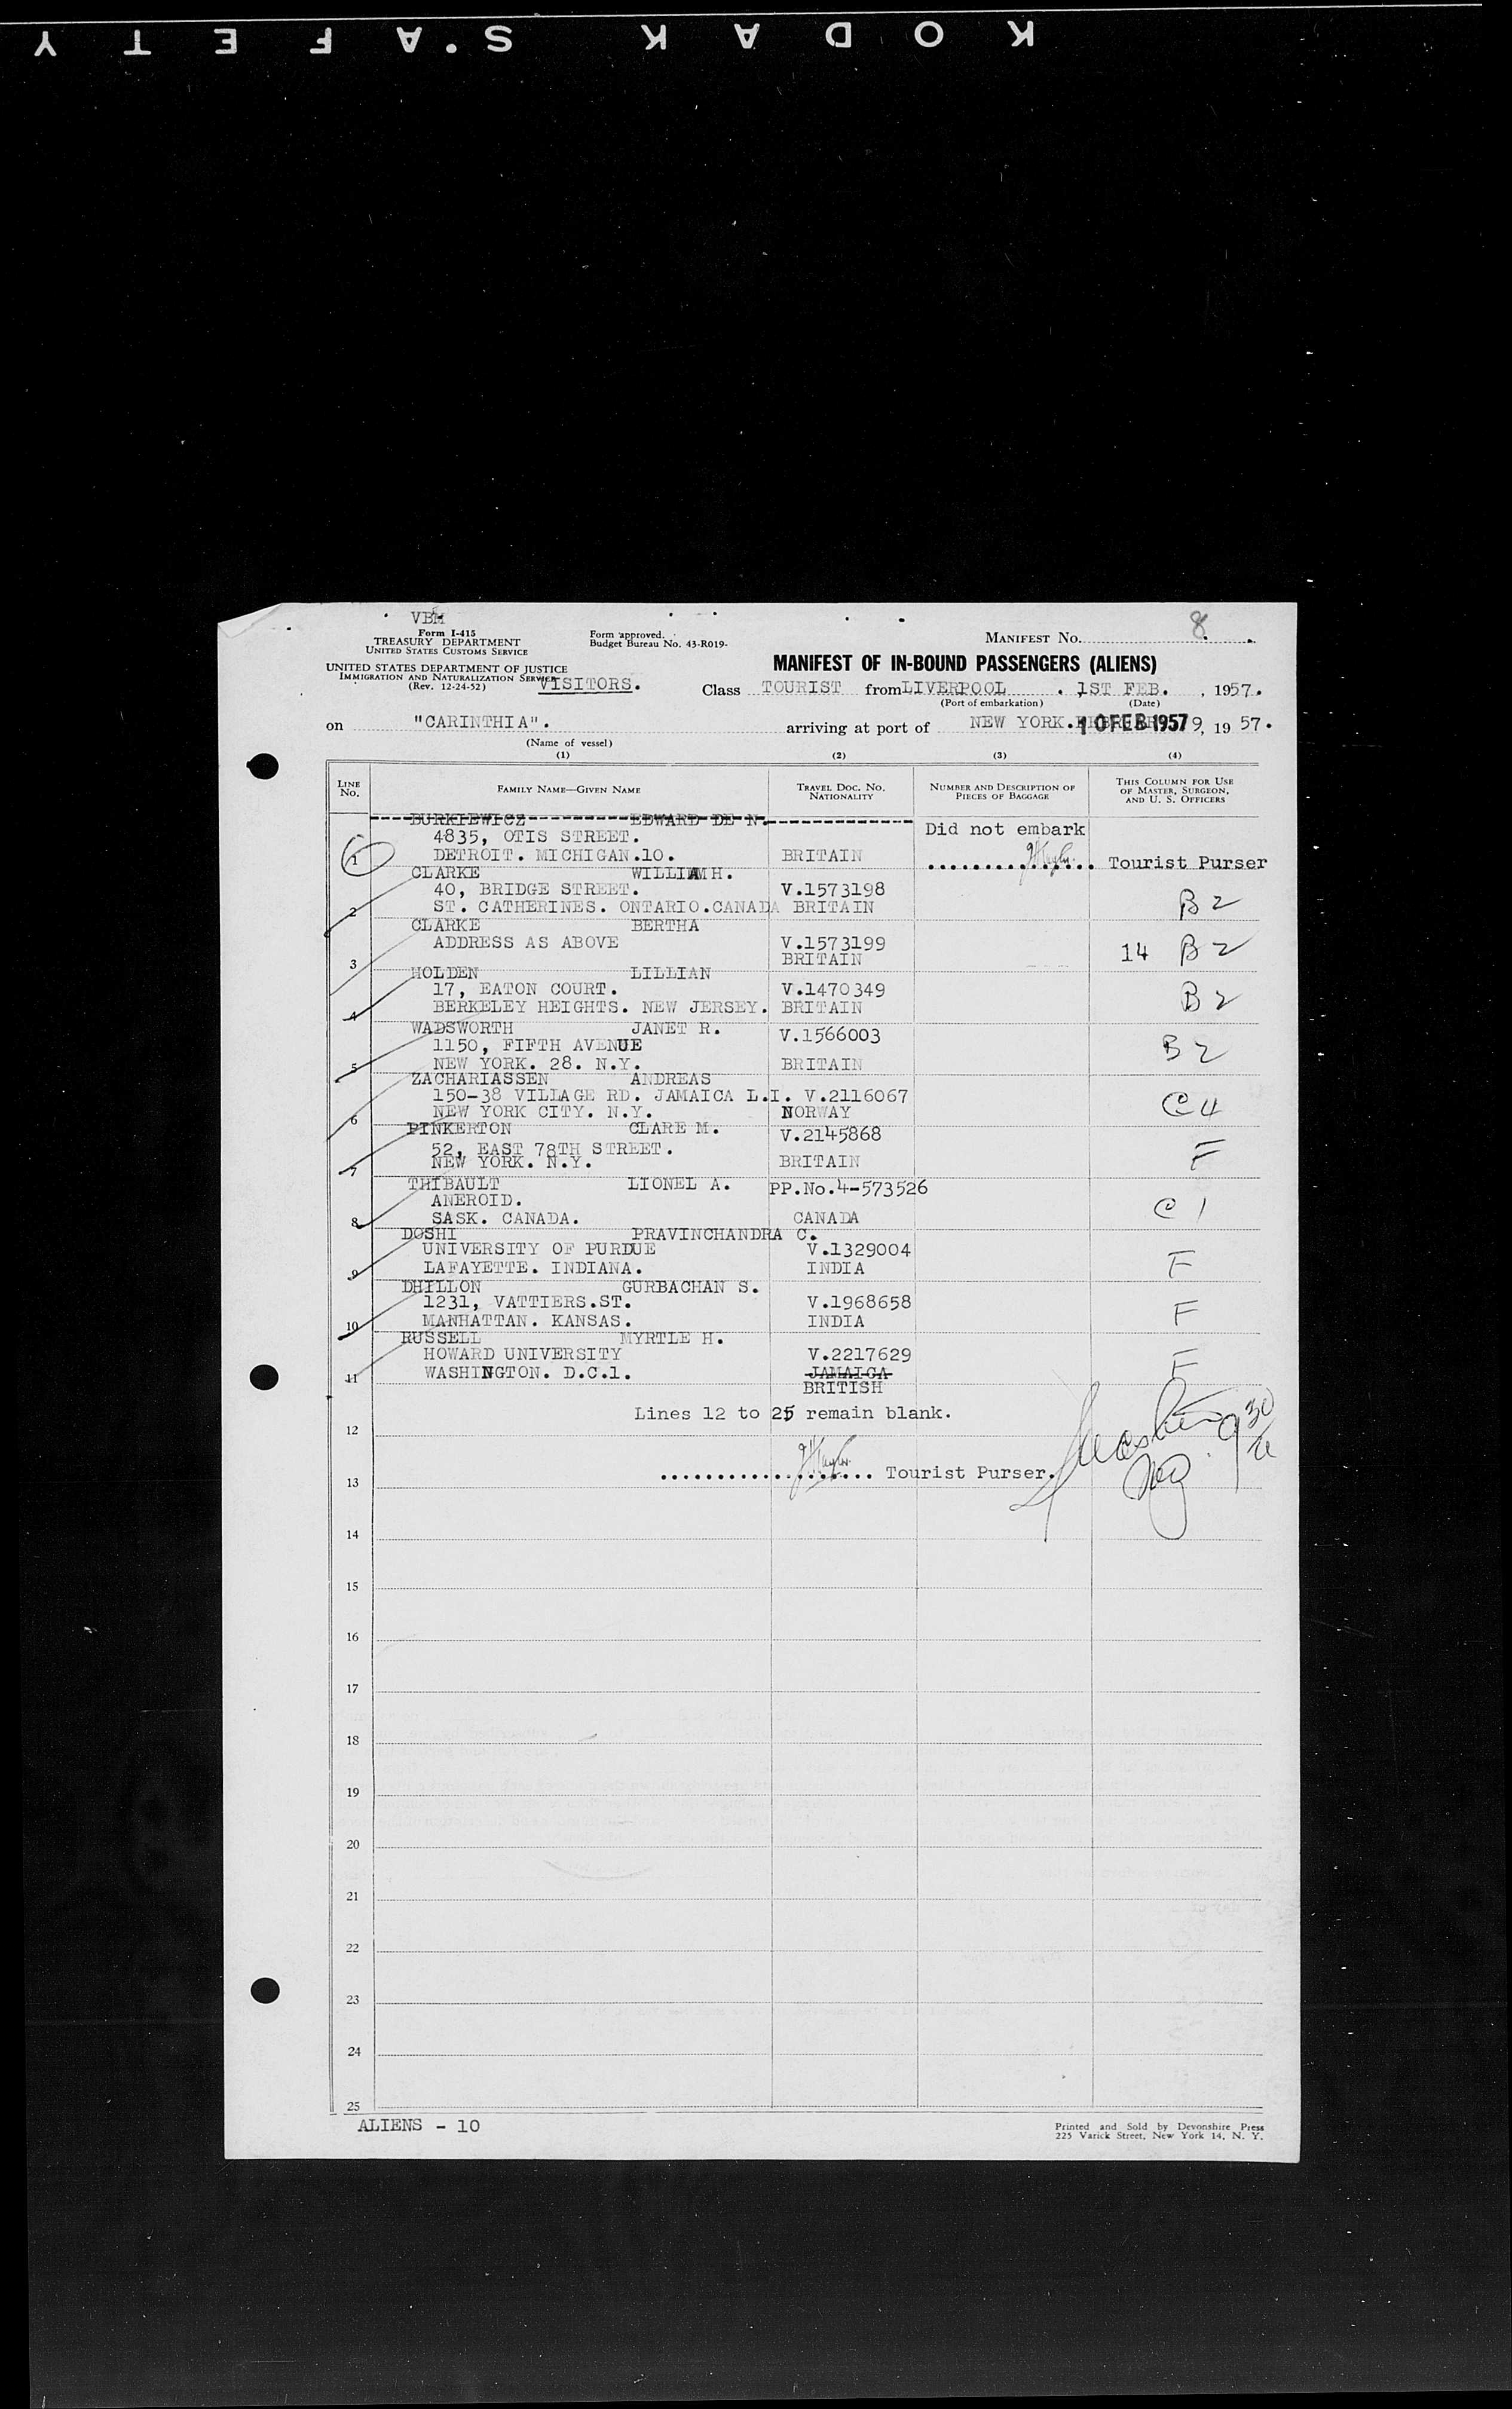 KODAK S.AFETY
VBM
Form I-415
TREASURY DEPARTMENT
UNITED STATES CUSTOMS SERVICE
Form approved.
Budget Bureau No. 43-R019-
MANIFEST No. 8
UNITED STATES DEPARTMENT OF JUSTICE
IMMIGRATION AND NATURALIZATION SERVICE
(Rev. 12-24-52)
VISITORS.
MANIFEST OF IN-BOUND PASSENGERS (ALIENS)
Class TOURIST from LIVERPOOL . 1ST FEB. , 1957.
(Port of embarkation) (Date)
on "CARINTHIA". arriving at port of NEW YORK. 10 FEB 1957 9, 19 57.
(Name of vessel)
(1) (2) (3) (4)
LINE No. FAMILY NAME—GIVEN NAME TRAVEL DOC. NO. NATIONALITY NUMBER AND DESCRIPTION OF PIECES OF BAGGAGE THIS COLUMN FOR USE OF MASTER, SURGEON, AND U. S. OFFICERS
BURKIEWICZ EDWARD DE N.
4835, OTIS STREET. Did not embark
1 DETROIT. MICHIGAN.10. BRITAIN Tourist Purser
CLARKE WILLIAM H.
40, BRIDGE STREET. V.1573198
2 ST. CATHERINES. ONTARIO.CANADA BRITAIN B2
CLARKE BERTHA
ADDRESS AS ABOVE V.1573199
3 BRITAIN 14 B2
HOLDEN LILLIAN
17, EATON COURT. V.1470349
4 BERKELEY HEIGHTS. NEW JERSEY. BRITAIN B2
WADSWORTH JANET R.
1150, FIFTH AVENUE V.1566003
5 NEW YORK. 28. N.Y. BRITAIN B2
ZACHARIASSEN ANDREAS
150-38 VILLAGE RD. JAMAICA L.I. V.2116067
6 NEW YORK CITY. N.Y. NORWAY C4
PINKERTON CLARE M.
52, EAST 78TH STREET. V.2145868
7 NEW YORK. N.Y. BRITAIN F
THIBAULT LIONEL A. PP.No.4-573526
ANEROID.
8 SASK. CANADA. CANADA C1
DOSHI PRAVINCHANDRA C.
UNIVERSITY OF PURDUE V.1329004
9 LAFAYETTE. INDIANA. INDIA F
DHILLON GURBACHAN S.
1231, VATTIERS.ST. V.1968658
10 MANHATTAN. KANSAS. INDIA F
RUSSELL MYRTLE H.
HOWARD UNIVERSITY V.2217629
11 WASHINGTON. D.C.1. JAMAICA F
BRITISH
Lines 12 to 25 remain blank.
12
Tourist Purser.
13
14
15
16
17
18
19
20
21
22
23
24
25
ALIENS - 10
Printed and Sold by Devonshire Press
225 Varick Street, New York 14, N. Y.